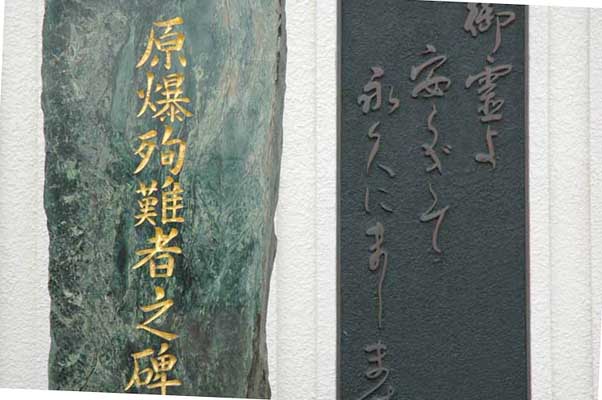 御霊よ
安らぎて
永久にましま
原爆殉難者之碑